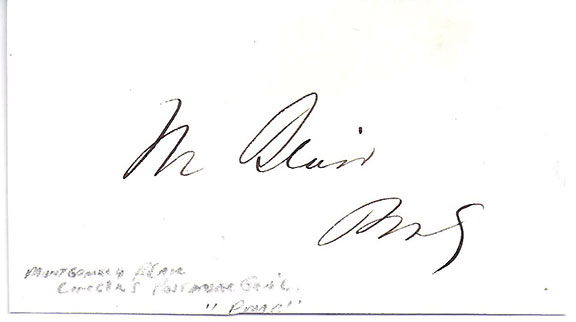 M Blair
PMG
MONTGOMERY BLAIR
LINCOLN'S POSTMASTER GEN'L.
"PMG"